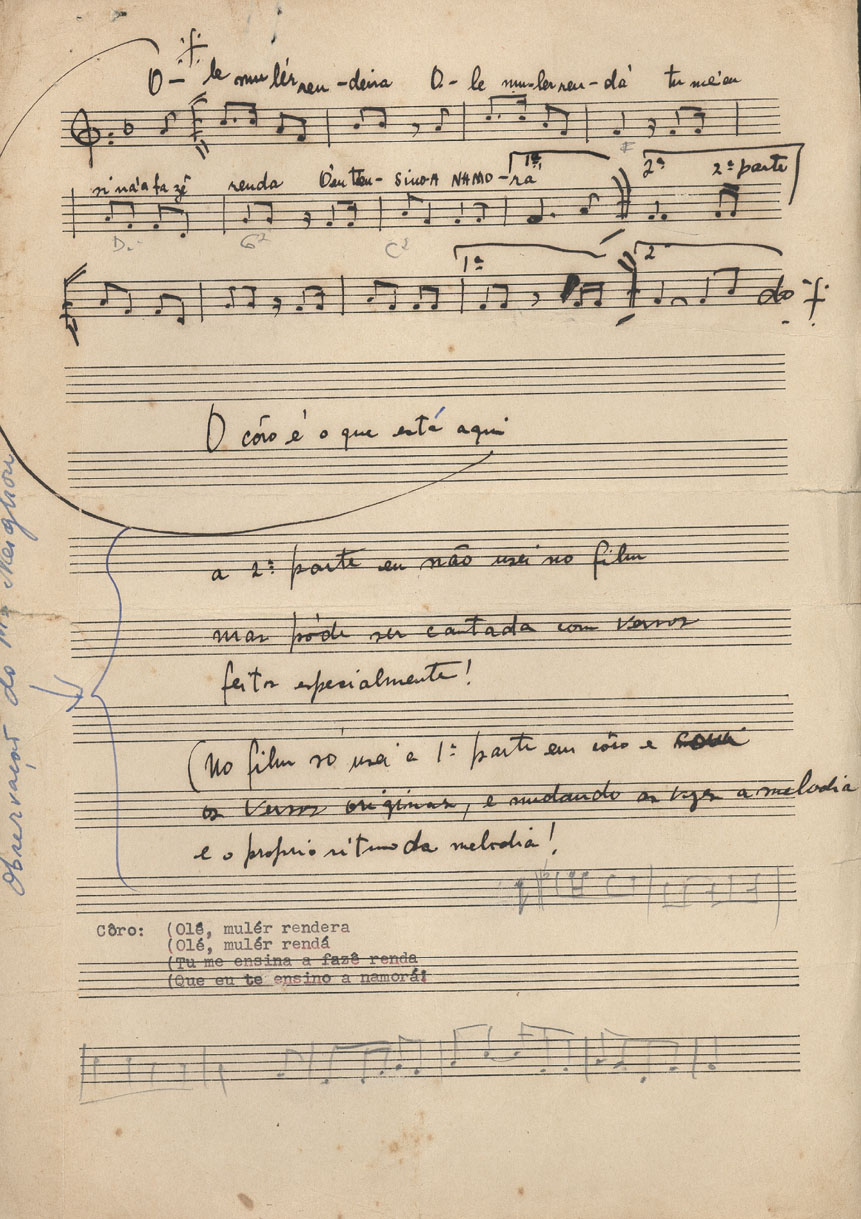 O- le mulér ren-deira O- le mu-ler ren-dá tu me'en
si na'a fazê renda Q'eu t'en- SINO-A NAMO-ra 1ª 2ª 2ª parte
D. G7 C7
1ª 2 do
O côro é o que está aqui
a 2ª parte eu não usei no film
mas póde ser cantada com versos
feitos especialmente!
(No film só usei a 1ª parte em côro e
os versos originais, e mudando as vezes a melodia
e o proprio ritmo da melodia!
Observação do Mº Mignone
Côro: (Olê, mulér rendera
(Olé, mulér rendá
(Tu me ensina a fazê renda
(Que eu te ensino a namorá!